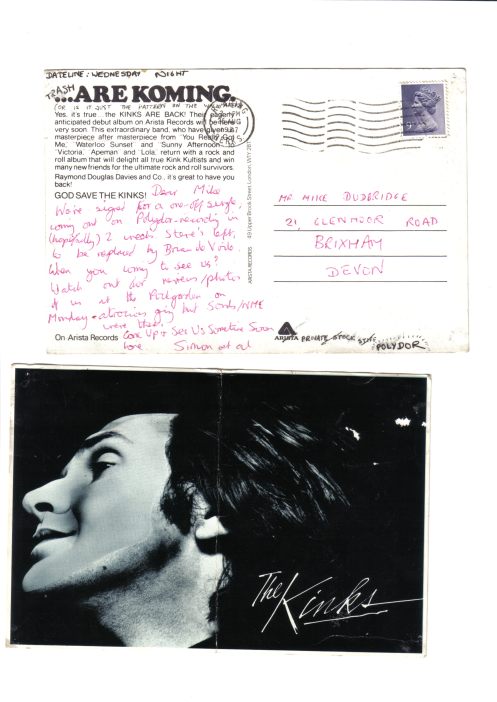 DATELINE: WEDNESDAY NIGHT
TRASH
...ARE KOMING.
(OR IS IT JUST THE PATTERN ON THE
Yes, it's true... the KINKS ARE BACK! Their eagerly
anticipated debut album on Arista Records will be here
very soon. This extraordinary band, who have given us
masterpiece after masterpiece from 'You Really Got
Me,' 'Waterloo Sunset' and 'Sunny Afternoon' to
'Victoria,' 'Apeman' and 'Lola,' return with a rock and
roll album that will delight all true Kink Kultists and win
many new friends for the ultimate rock and roll survivors.
Raymond Douglas Davies and Co., it's great to have you
back!
GOD SAVE THE KINKS!
Dear Mike
We're signed for a one-off single,
coming out on Polydor - recording in
(hopefully) 2 weeks. Steve's left,
to be replaced by Brian de
When you coming to see us?
Watch out for reviews/photos
of us at the Roxy
Monday - atrocious gig but Sounds/NME
were there.
Come Up & See Us Sometime Soon
love Simon et al
On Arista Records
ARISTA RECORDS 49 Upper Brook Street, London, W1Y 2BT
ARISTA PRIVATE STOCK
POLYDOR
MR MIKE DUDBRIDGE
21, GLENMOOR ROAD
BRIXHAM
DEVON
The Kinks